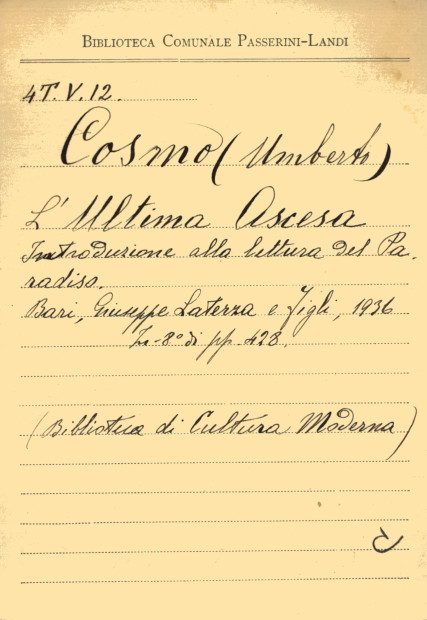 BIBLIOTECA COMUNALE PASSERINI-LANDI
4T. V. 12.
Cosmo (Umberto)
L'Ultima Ascesa
Introduzione alla lettura del Pa-
radiso.
Bari, Giuseppe Laterza e Figli, 1936
In-8° di pp. 428.
(Biblioteca di Cultura Moderna)